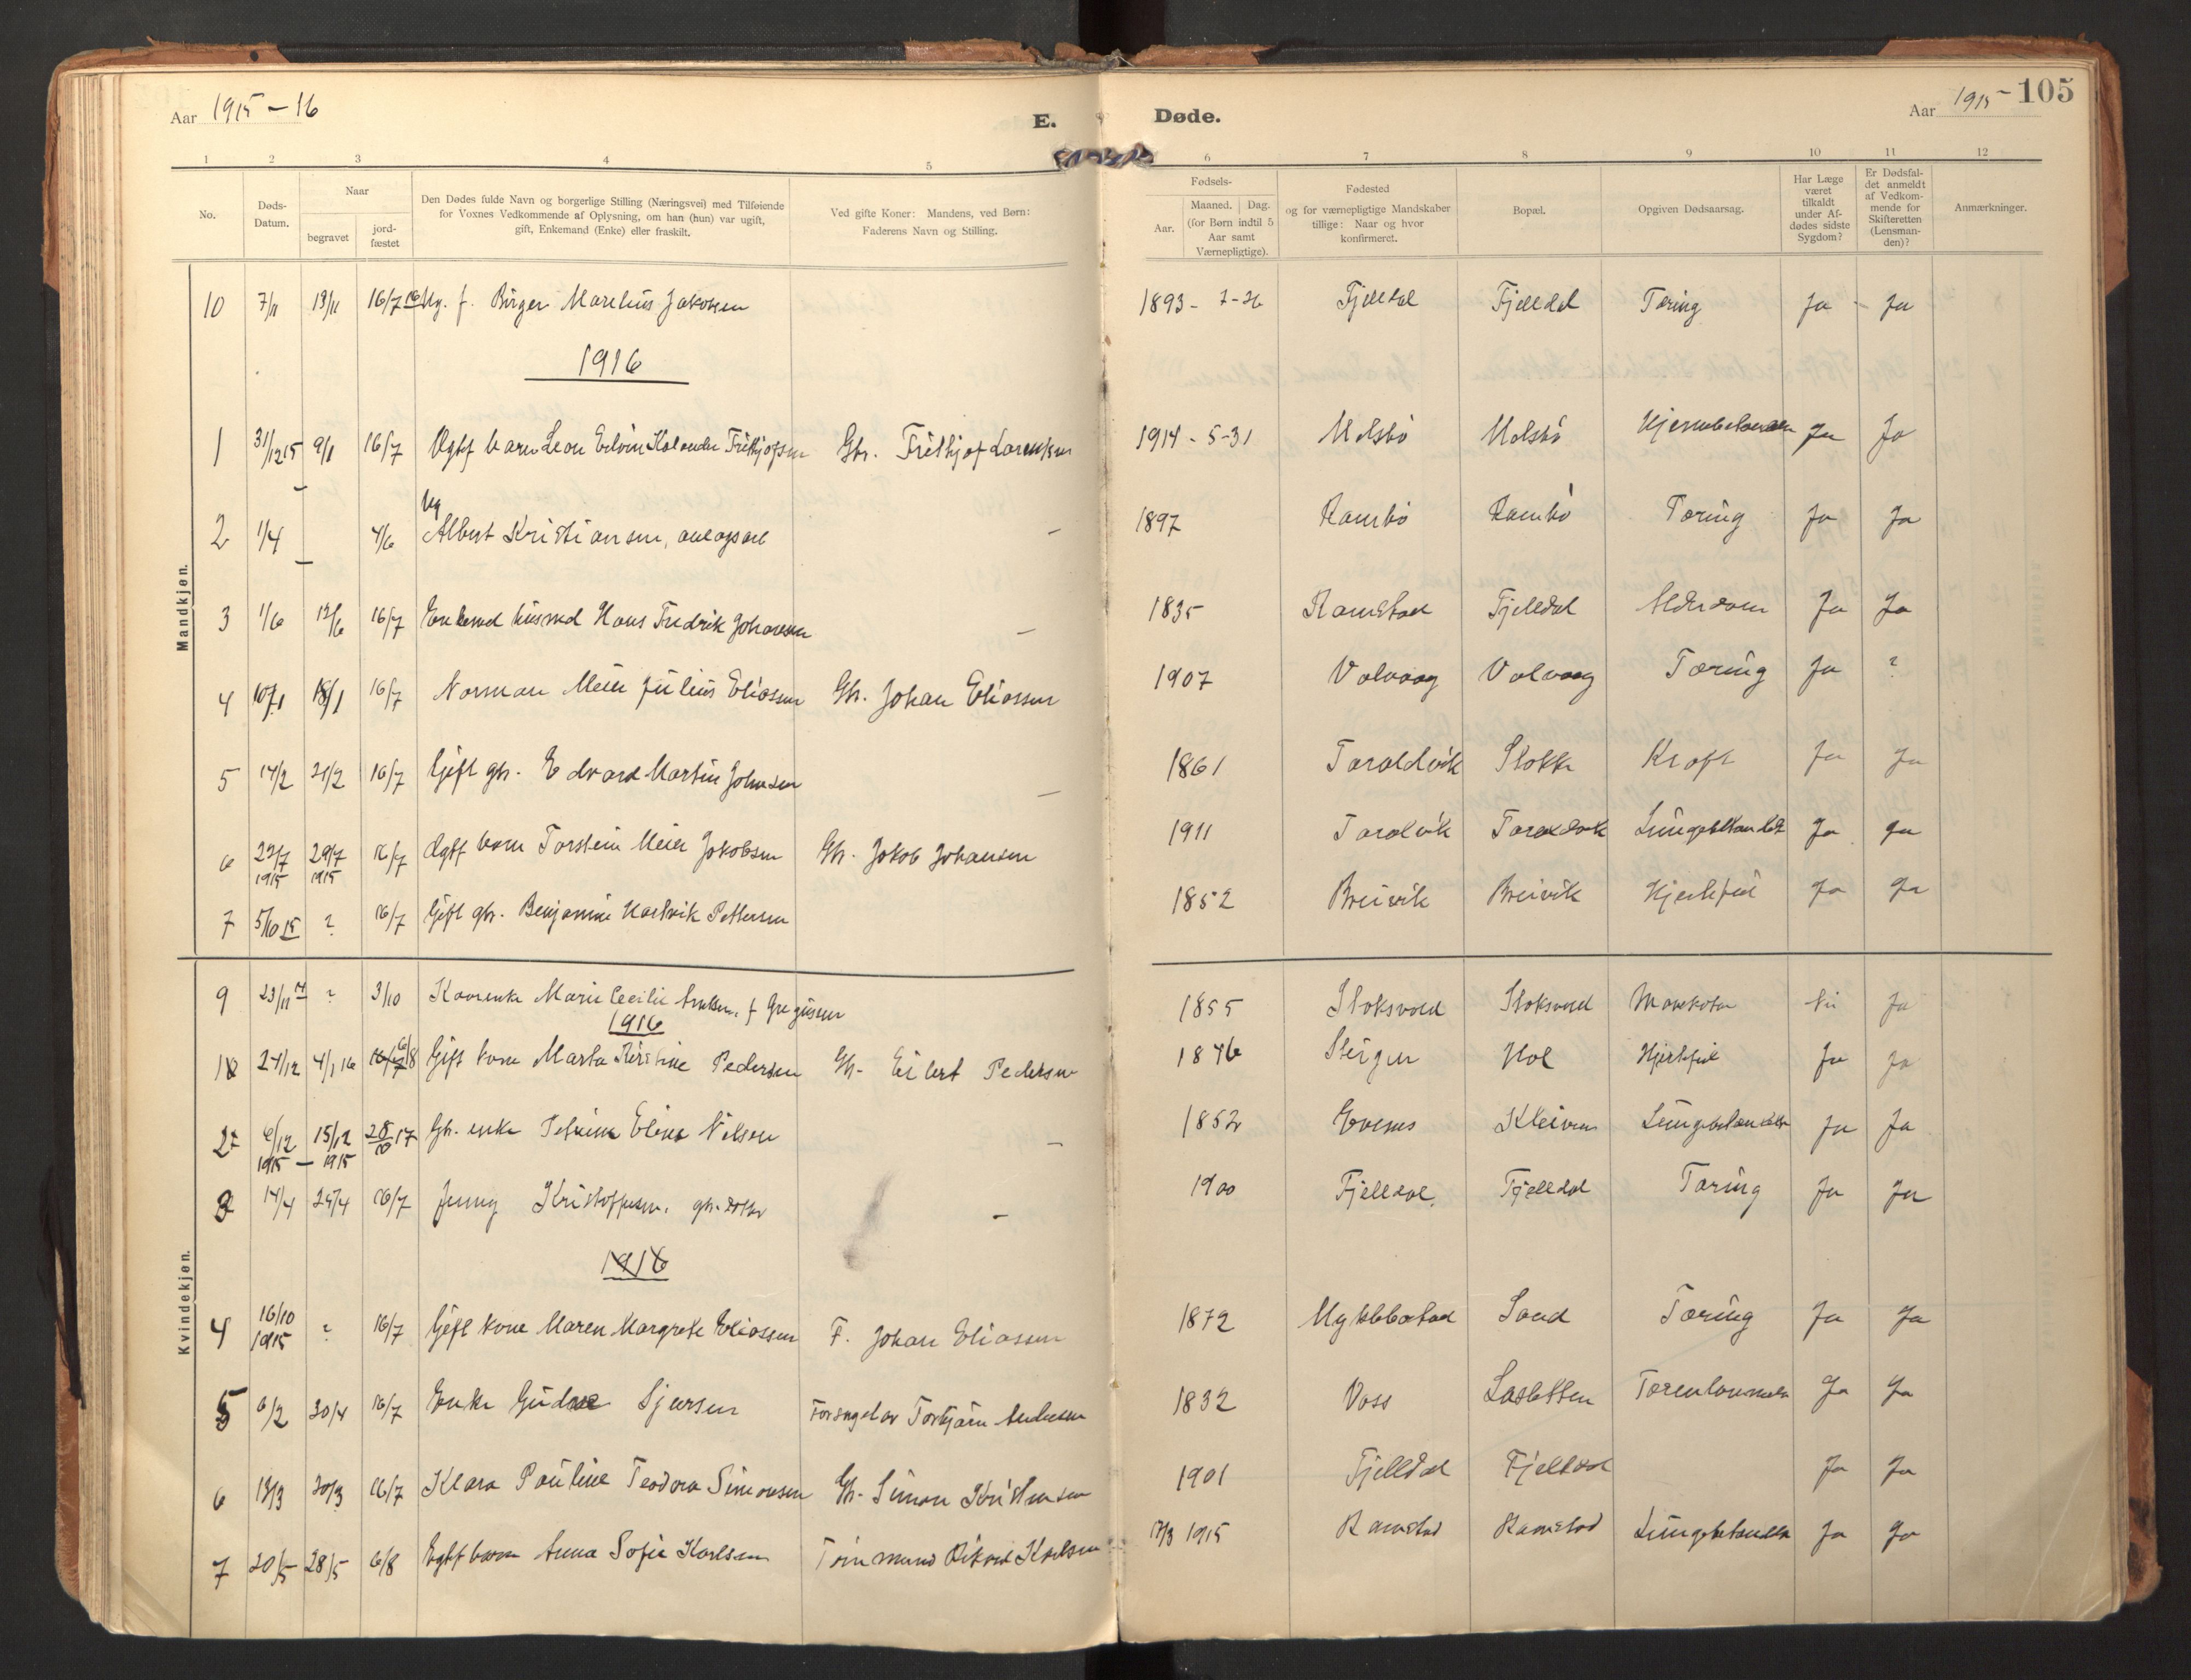 Aar 1915-16
E.
Døde.
Aar 1915-
105
1 2 3 4 5 6 7 8 9 10 11 12
No.
Døds-
Datum.
Naar
begravet
jord-
fæstet
Den Dødes fulde Navn og borgerlige Stilling (Næringsvei) med Tilføiende
for Voxnes Vedkommende af Oplysning, om han (hun) var ugift,
gift, Enkemand (Enke) eller fraskilt.
Ved gifte Koner: Mandens, ved Børn:
Faderens Navn og Stilling.
Fødsels-
Aar.
Maaned. Dag.
(for Børn indtil 5
Aar samt
Værnepligtige).
Fødested
og for værnepligtige Mandskaber
tillige: Naar og hvor
konfirmeret.
Bopæl.
Opgiven Dødsaarsag.
Har Læge
været
tilkaldt
under Af-
dødes sidste
Sygdom?
Er Dødsfal-
det anmeldt
af Vedkom-
mende for
Skifteretten
(Lensman-
den)?
Anmærkninger.
Mandkjøn.
10 7/11 13/11 16/7 16 Ug. f. Birger Marelius Jakobsen 1893 - 7-26 Fjelldal Fjelldal Tæring Ja Ja
1916
1 31/12 15 9/1 16/7 Ægtf barn Leon Edvin Frithjofsen Gbr. Frithjof Lorentsen 1914 - 5-31 Molsbø Molsbø Ja Ja
Ug
2 1/4 — 4/6 Albert Kristiansen, — 1897 Rambø Rambø Tæring Ja Ja
3 1/6 12/6 16/7 Enkemd husmd Hans Fredrik Johansen — 1835 Ramstad Fjelldal Alderdom Ja Ja
4 10/1 18/1 16/7 Norman Meier Julius Eliassen Gbr. Johan Eliassen 1907 Volvaag Volvaag Tæring Ja ?
5 14/2 21/2 16/7 Gift gbr. Edvard Martin Johnsen — 1861 Taraldvik Stokke Kræft Ja Ja
6 22/7 1915 29/7 1915 16/7 Ægtf barn Torstein Meier Jakobsen Gbr. Jakob Johansen 1911 Taralvik Taraldvik Lungebetændelse Ja Ja
7 5/10 15 ? 16/7 Gift gbr. Benjamin Hartvik Pettersen 1852 Breivik Breivik Hjertefeil Ja Ja
Kvindekjøn.
9 23/11 14 ? 3/10 Kaarenke Marie Cecilie f Gregusen 1855 Stoksvold Stoksvold Ja
1916
1 27/12 4/1 16 6/8 Gift kone Marta Kirstine Pedersen Gb- Eilert Pedersen 1846 Steigen Hol Hjertefeil Ja Ja
2 6/12 1915 — 15/12 1915 28/10 17 Gb. enke Petrine Eline Nilsen — 1852 Evenes Kleiven Lungebetændelse Ja Ja
3 14/4 24/4 16/7 Jenny Kristoffersen. gbr. datter — 1900 Fjelldal. Fjelldal Tæring Ja Ja
1916
4 16/10 1915 ? 16/7 Gift kone Maren Margrete Eliassen F. Johan Eliassen 1872 Myklebostad Sand Tæring Ja Ja
5 6/2 30/4 16/7 Enke Sjursen Forsørget av Torbjørn Andersen 1832 Voss Ja Ja
6 13/3 20/3 16/7 Klara Pauline Teodora Simonsen Gb- Simon Kristensen 1901 Fjelldal Fjelldal Ja Ja
7 20/5 28/5 6/8 Ægtf barn Anna Sofie Karlsen Rikard Karlsen 17/3 1915 Ramstad Ramstad Lungebetændelse Ja Ja